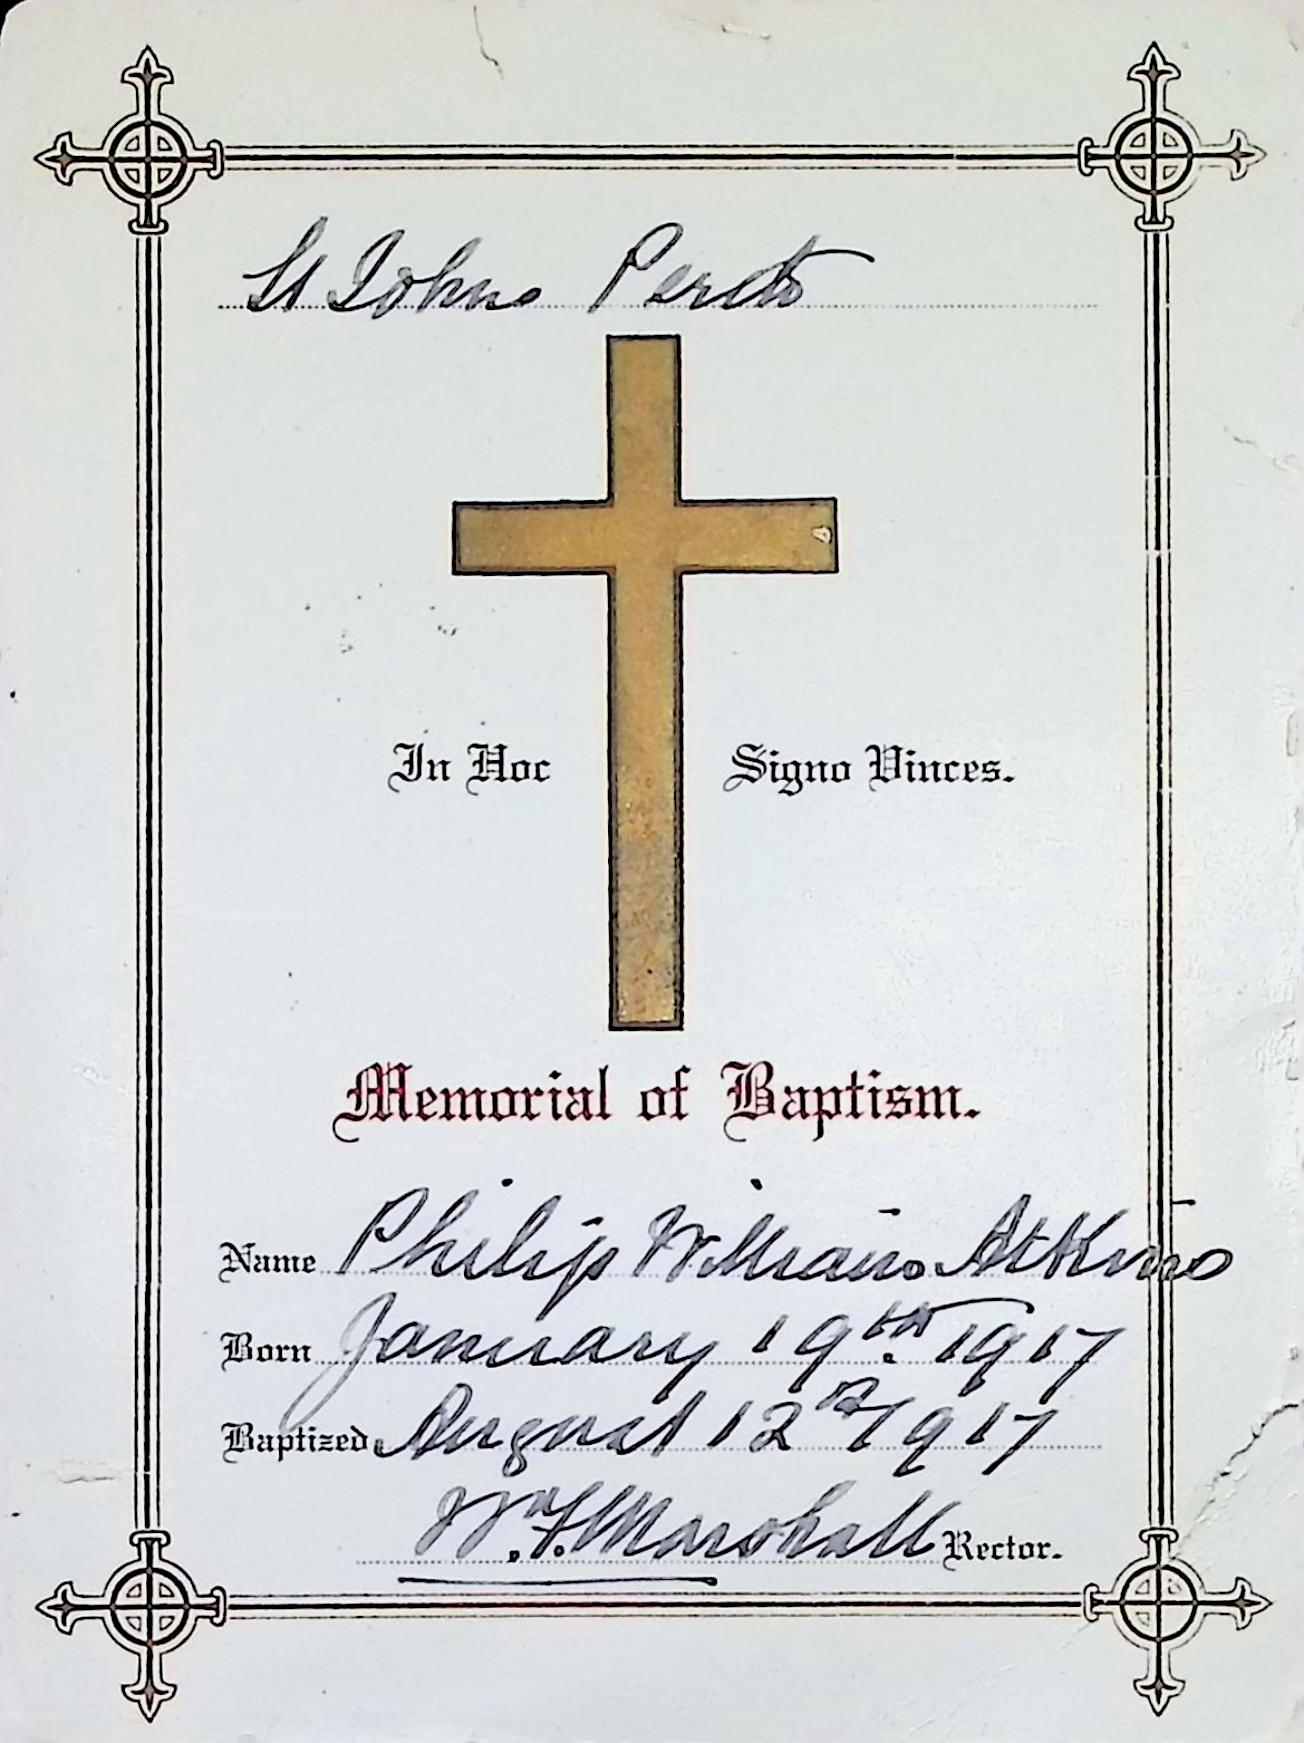 St Johns Perth
In Hoc Signo Vinces.
Memorial of Baptism.
Name Philip William Atkins
Born January 19th. 1917
Baptized August 12th 1917
W. F. Marshall Rector.